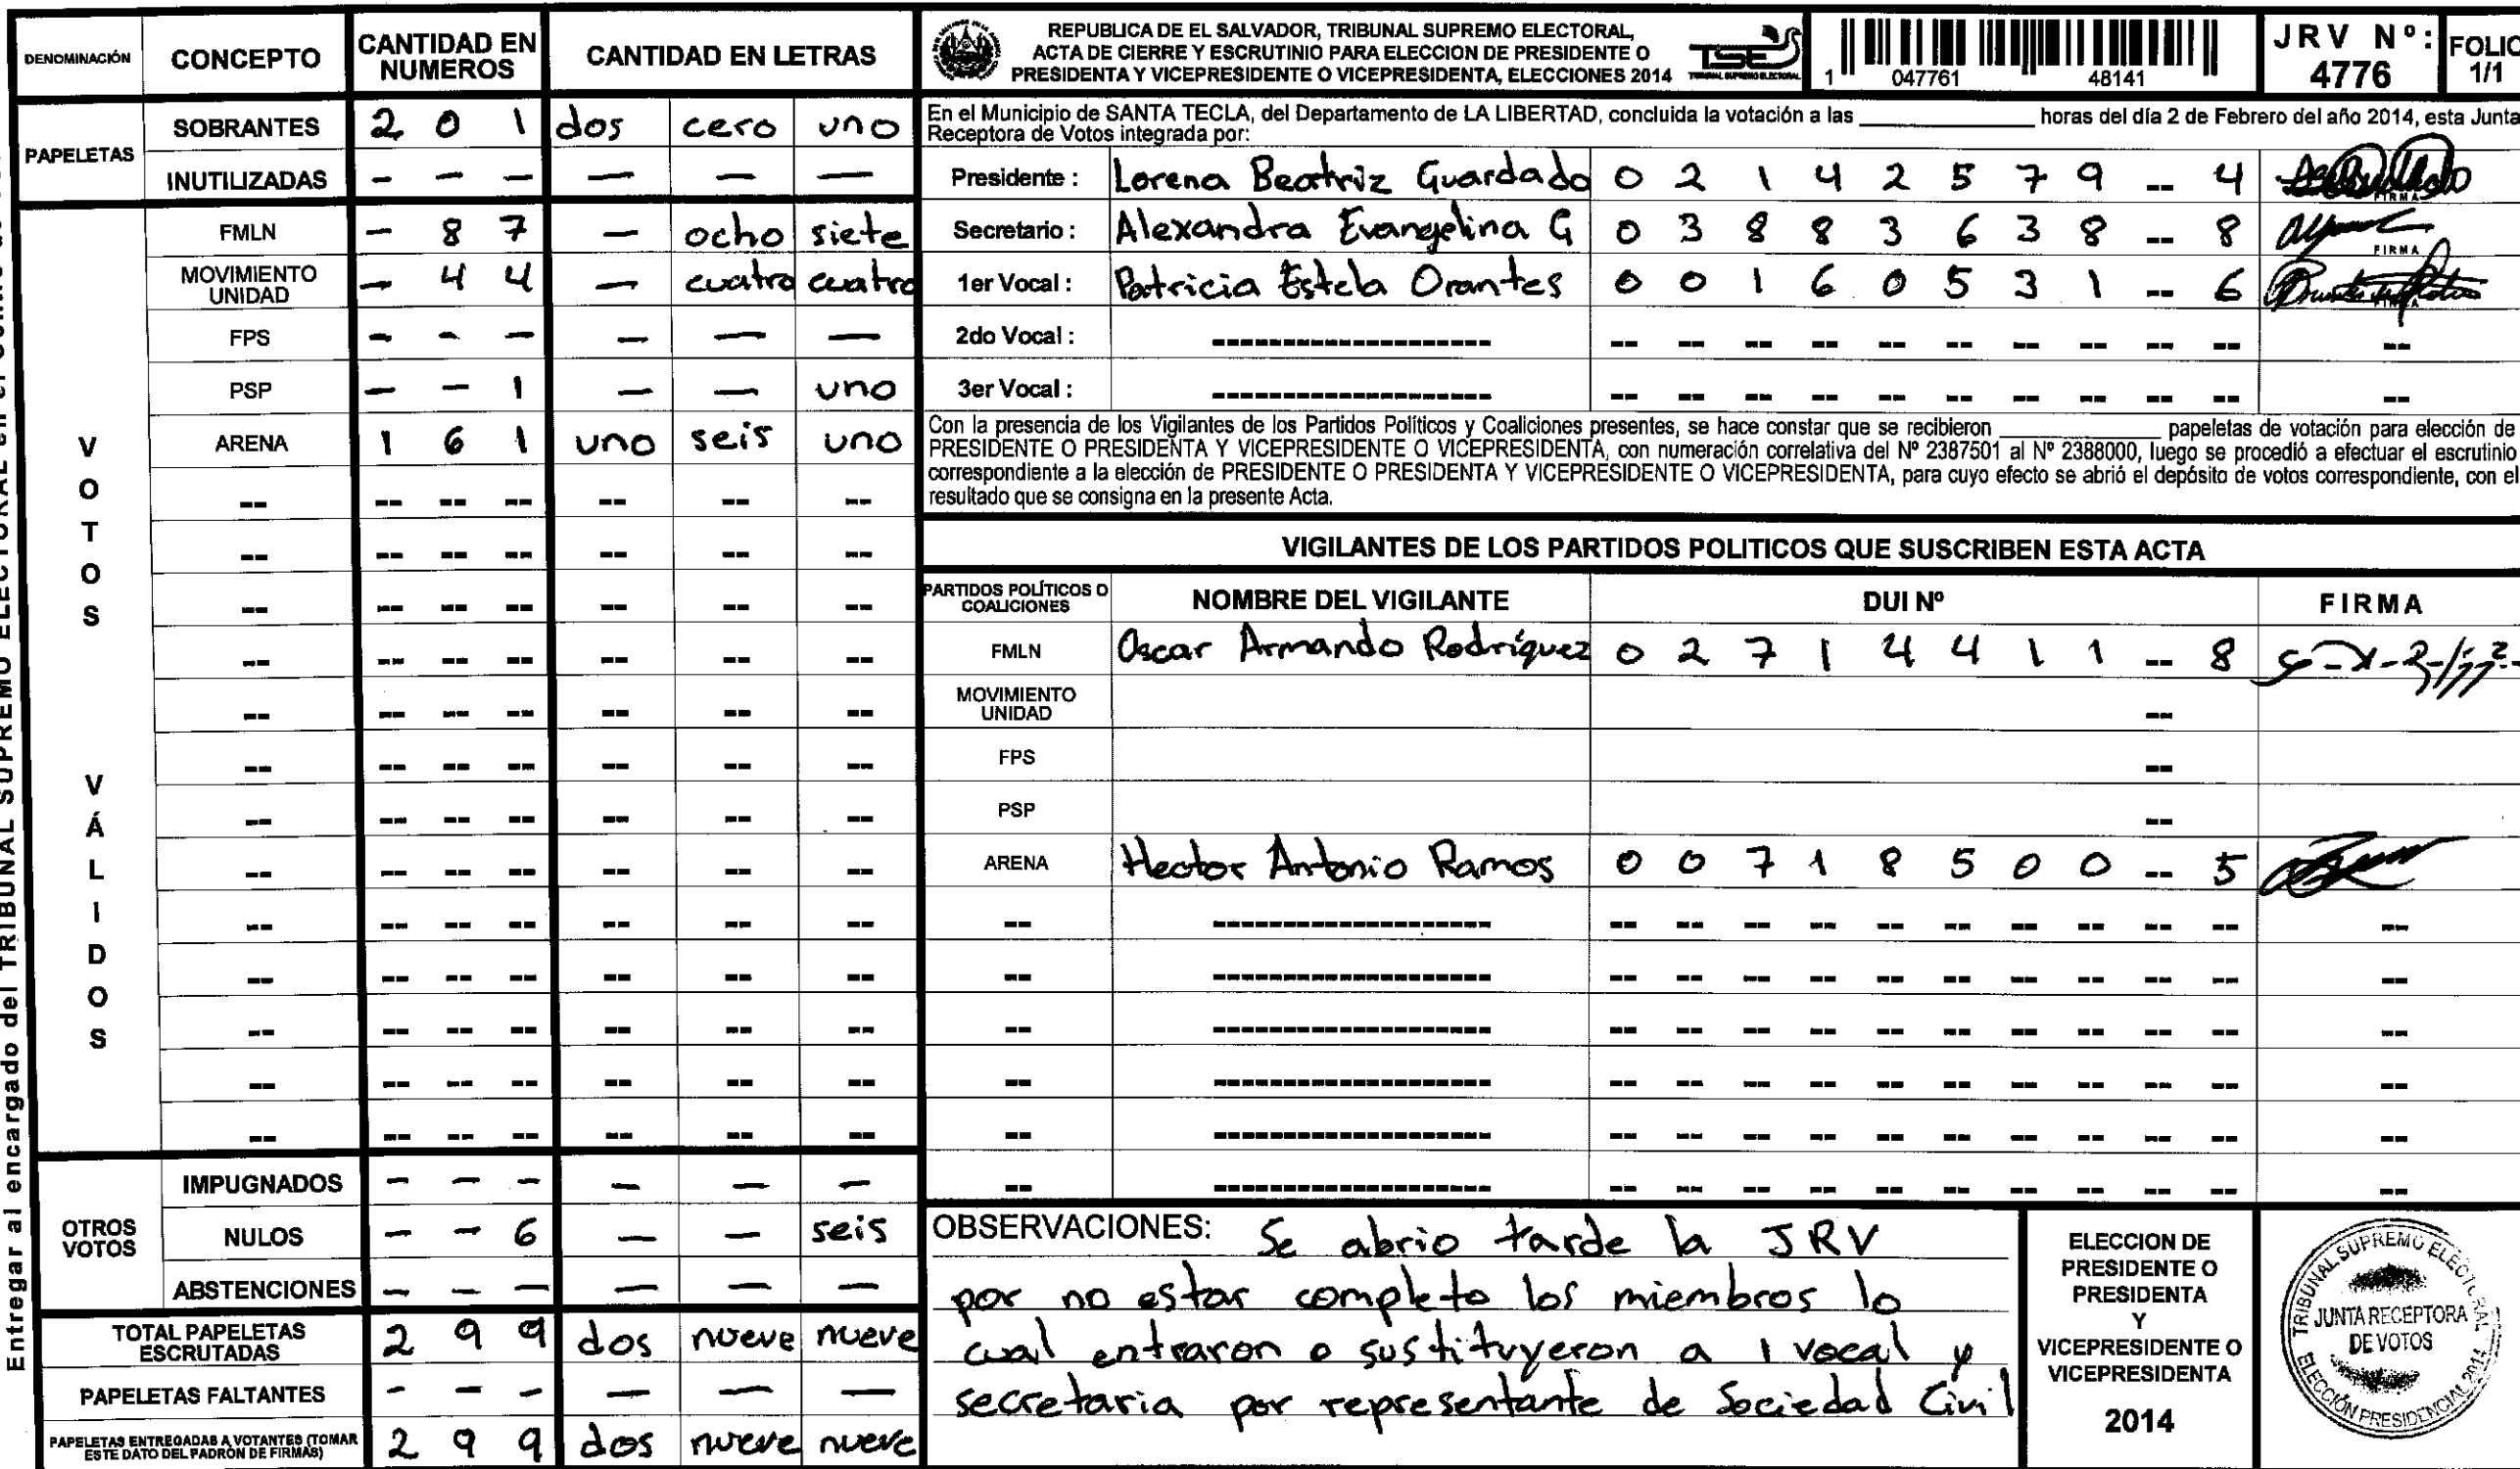 DENOMINACIÓN CONCEPTO CANTIDAD EN NUMEROS CANTIDAD EN LETRAS
PAPELETAS
SOBRANTES 2 0 1 dos cero uno
INUTILIZADAS - - - - - -
VOTOS VÁLIDOS
FMLN - 8 7 - ocho siete
MOVIMIENTO UNIDAD - 4 4 - cuatro cuatro
FPS - - - - - -
PSP - - 1 - - uno
ARENA 1 6 1 uno seis uno
-- -- -- -- -- -- --
-- -- -- -- -- -- --
-- -- -- -- -- -- --
-- -- -- -- -- -- --
-- -- -- -- -- -- --
-- -- -- -- -- -- --
-- -- -- -- -- -- --
-- -- -- -- -- -- --
-- -- -- -- -- -- --
-- -- -- -- -- -- --
-- -- -- -- -- -- --
-- -- -- -- -- -- --
-- -- -- -- -- -- --
OTROS VOTOS
IMPUGNADOS - - - - - -
NULOS - - 6 - - seis
ABSTENCIONES - - - - - -
TOTAL PAPELETAS ESCRUTADAS 2 9 9 dos nueve nueve
PAPELETAS FALTANTES - - - - - -
PAPELETAS ENTREGADAS A VOTANTES (TOMAR ESTE DATO DEL PADRÓN DE FIRMAS) 2 9 9 dos nueve nueve
Entregar al encargado del TRIBUNAL SUPREMO ELECTORAL en el
REPUBLICA DE EL SALVADOR, TRIBUNAL SUPREMO ELECTORAL,
ACTA DE CIERRE Y ESCRUTINIO PARA ELECCION DE PRESIDENTE O
PRESIDENTA Y VICEPRESIDENTE O VICEPRESIDENTA, ELECCIONES 2014
TSE
TRIBUNAL SUPREMO ELECTORAL
1 047761 48141
JRV Nº: 4776
FOLIO 1/1
En el Municipio de SANTA TECLA, del Departamento de LA LIBERTAD, concluida la votación a las ____________ horas del día 2 de Febrero del año 2014, esta Junta
Receptora de Votos integrada por:
Presidente : Lorena Beatriz Guardado 0 2 1 4 2 5 7 9 -- 4 FIRMA
Secretario : Alexandra Evangelina G 0 3 8 8 3 6 3 8 -- 8 FIRMA
1er Vocal : Patricia Estela Orantes 0 0 1 6 0 5 3 1 -- 6
2do Vocal : -------------------- -- -- -- -- -- -- -- -- -- -- --
3er Vocal : -------------------- -- -- -- -- -- -- -- -- -- -- --
Con la presencia de los Vigilantes de los Partidos Políticos y Coaliciones presentes, se hace constar que se recibieron ____________ papeletas de votación para elección de
PRESIDENTE O PRESIDENTA Y VICEPRESIDENTE O VICEPRESIDENTA, con numeración correlativa del Nº 2387501 al Nº 2388000, luego se procedió a efectuar el escrutinio
correspondiente a la elección de PRESIDENTE O PRESIDENTA Y VICEPRESIDENTE O VICEPRESIDENTA, para cuyo efecto se abrió el depósito de votos correspondiente, con el
resultado que se consigna en la presente Acta.
VIGILANTES DE LOS PARTIDOS POLITICOS QUE SUSCRIBEN ESTA ACTA
PARTIDOS POLÍTICOS O COALICIONES NOMBRE DEL VIGILANTE DUI Nº FIRMA
FMLN Oscar Armando Rodríguez 0 2 7 1 4 4 1 1 -- 8
MOVIMIENTO UNIDAD --
FPS --
PSP --
ARENA Hector Antonio Ramos 0 0 7 1 8 5 0 0 -- 5
-- -------------------- -- -- -- -- -- -- -- -- -- -- --
-- -------------------- -- -- -- -- -- -- -- -- -- -- --
-- -------------------- -- -- -- -- -- -- -- -- -- -- --
-- -------------------- -- -- -- -- -- -- -- -- -- -- --
-- -------------------- -- -- -- -- -- -- -- -- -- -- --
-- -------------------- -- -- -- -- -- -- -- -- -- -- --
OBSERVACIONES: Se abrio tarde la JRV
por no estar completo los miembros lo
cual entraron o sustituyeron a 1 vocal y
secretaria por representante de Sociedad Civil
ELECCION DE
PRESIDENTE O
PRESIDENTA
Y
VICEPRESIDENTE O
VICEPRESIDENTA
2014
TRIBUNAL SUPREMO ELECTORAL
JUNTA RECEPTORA
DE VOTOS
ELECCIÓN PRESIDENCIAL 2014